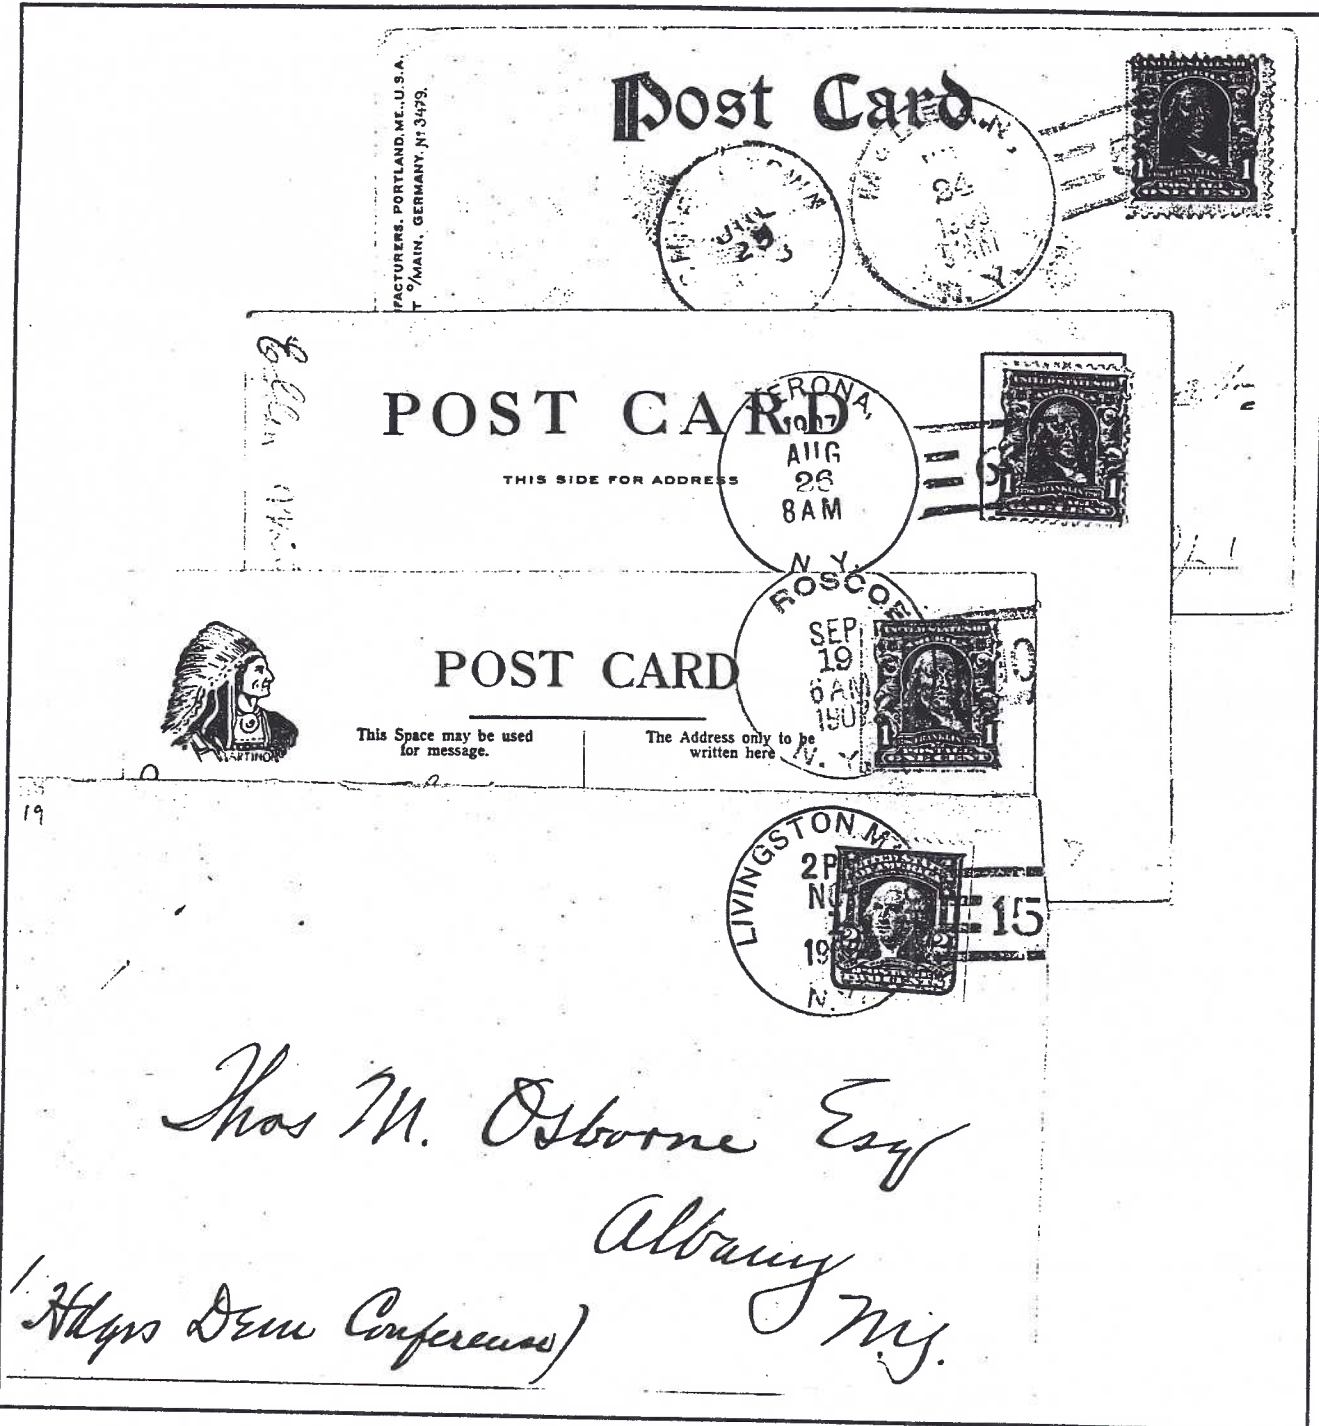 FACTURERS, PORTLAND, ME., U.S.A.
T º/MAIN, GERMANY. Nº 3479.
Post Card
JUL
25
24
N. Y.
1 1
POST CARD
THIS SIDE FOR ADDRESS
VERONA,
1907
AUG
26
8AM
N. Y.
6
1 1
POST CARD
This Space may be used
for message.
The Address only to be
written here
ROSCOE
SEP
19
6 AM
N. Y.
0
1 1
19
LIVINGSTON
2P
19
N.Y.
2 2
15
Thos M. Osborne Esq
Albany
N.Y.
(Hdqrs Dem Conference)